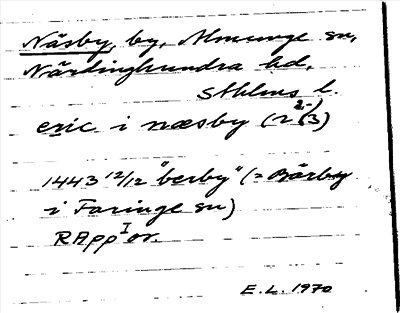 Näsby, by, Almunge sn,
Närdinghundra hd,
Sthlms l.
eric i næsby (r 2/3)
1443 12/12 "berby" (= Bärby
i Faringe sn)
RApp I or.
E.L. 1970